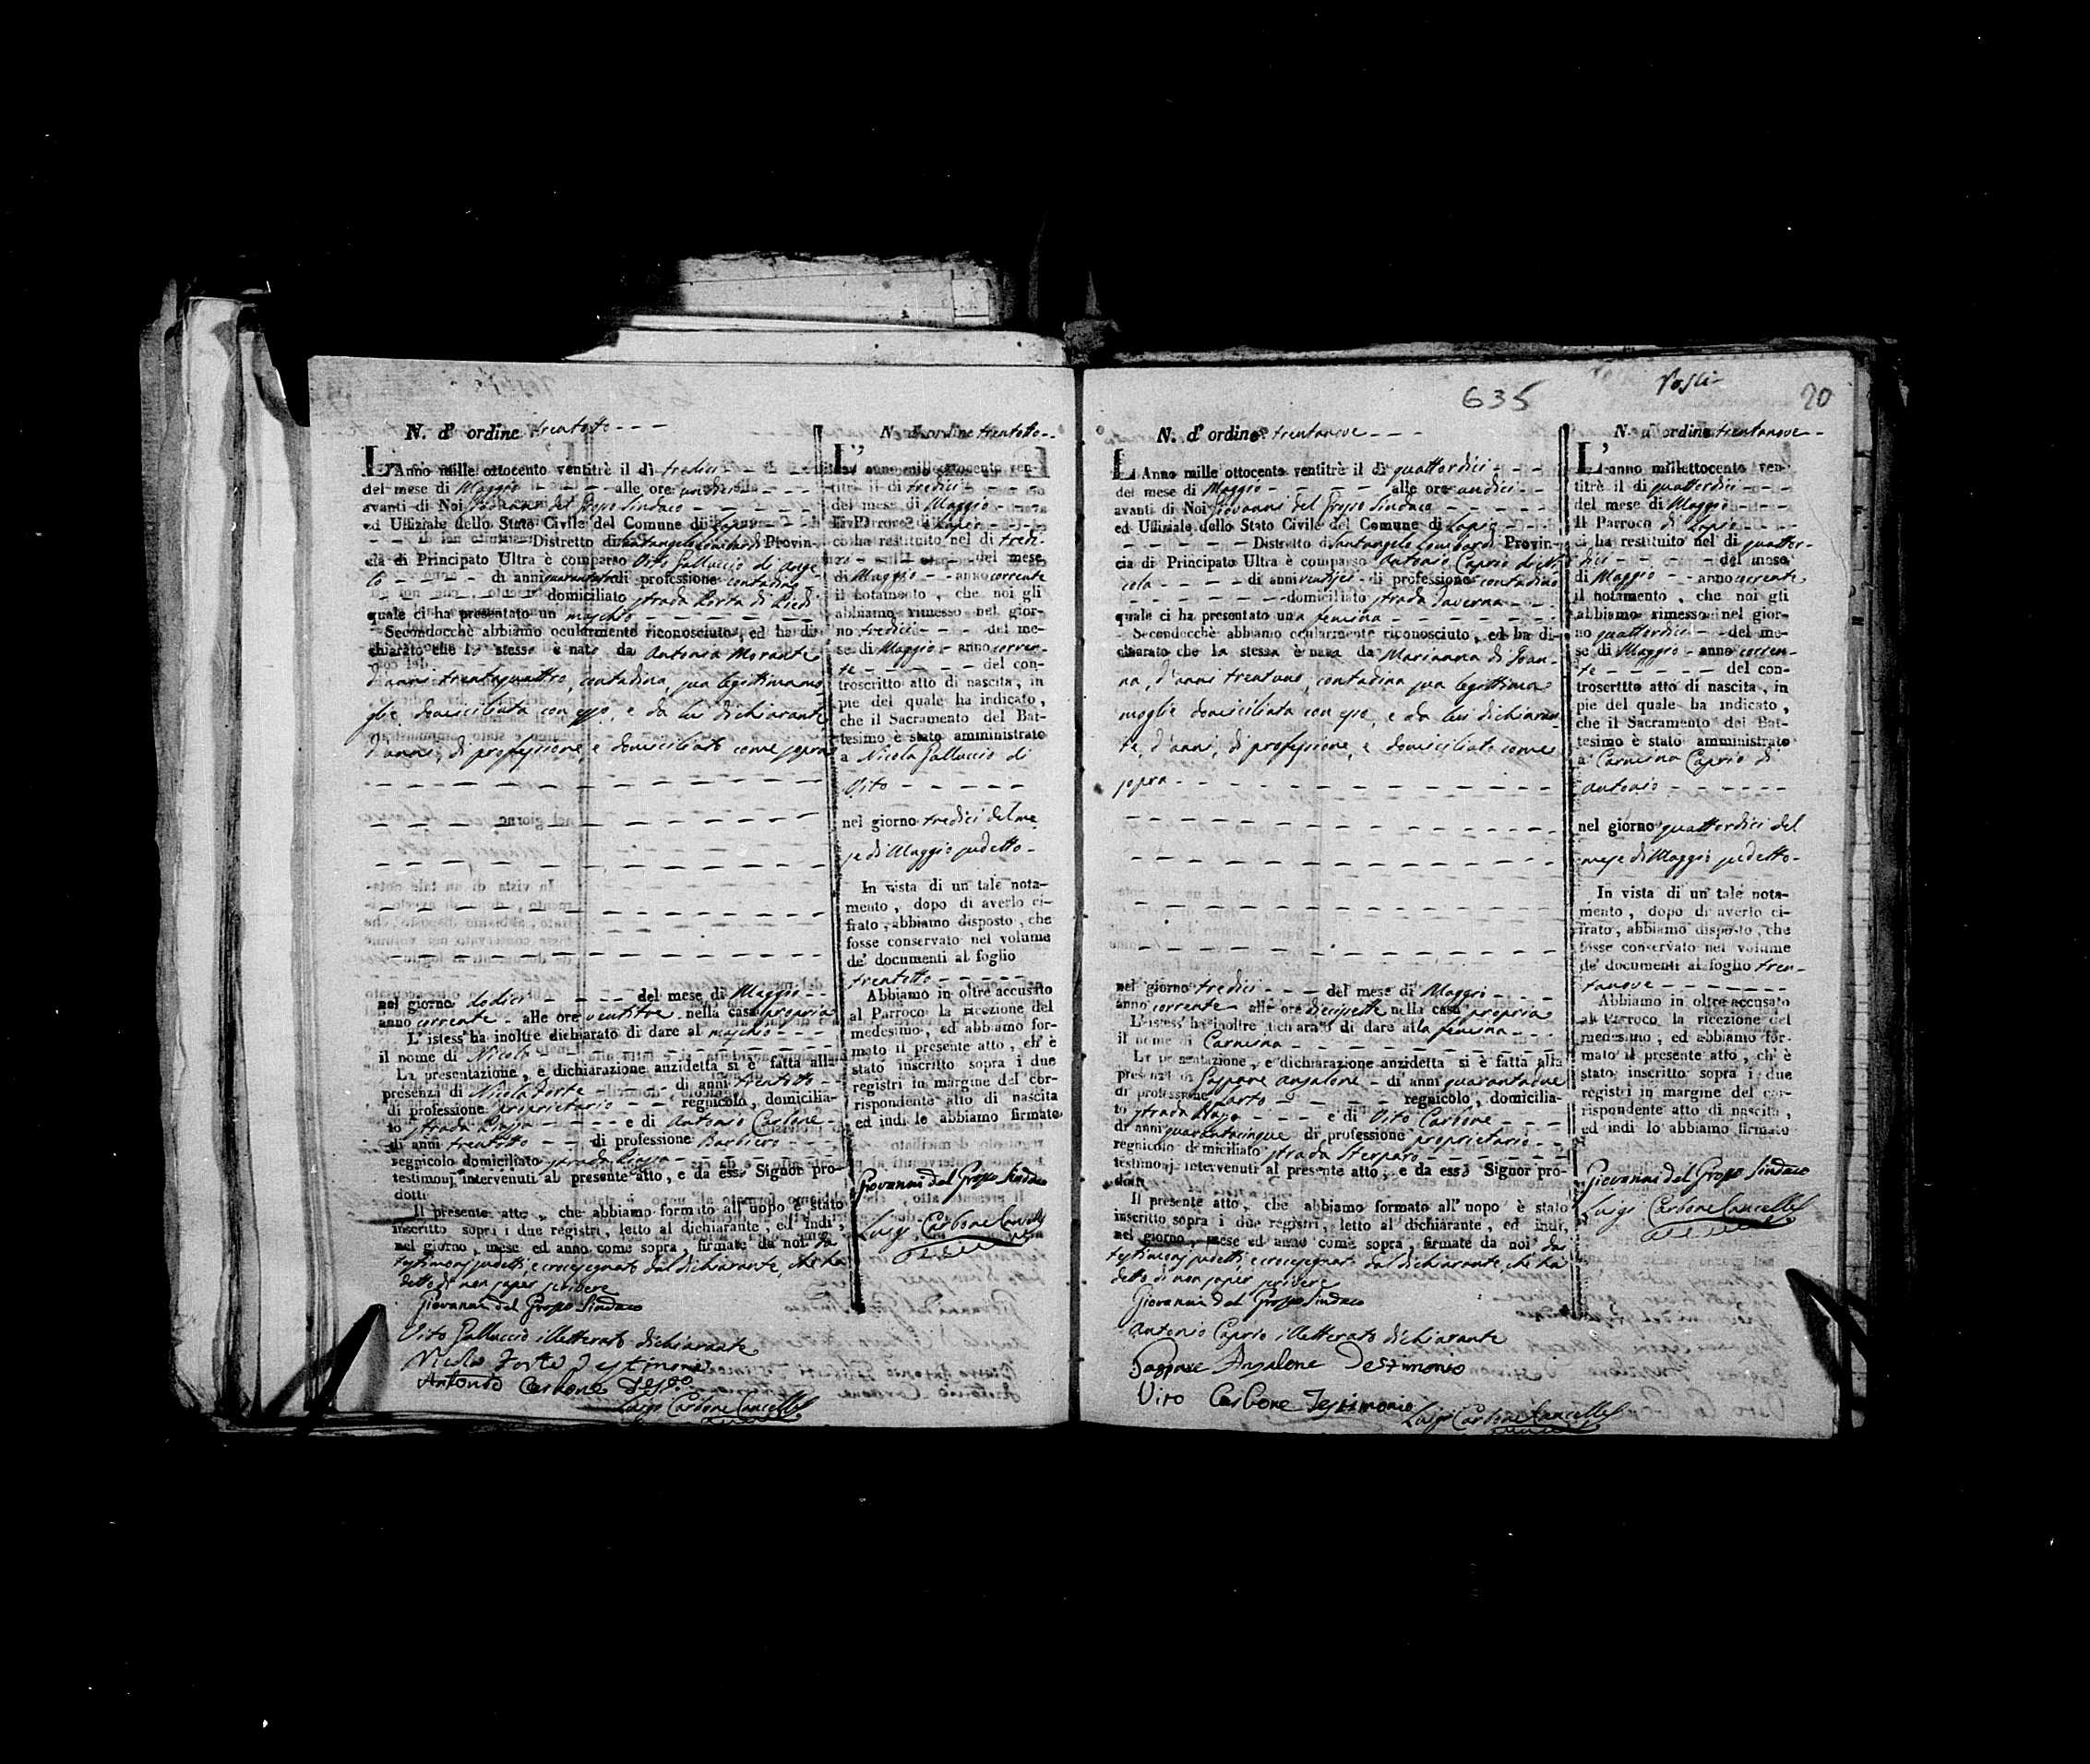 N. d' ordine trentotto
L'Anno mille ottocento ventitrè il dì tredici
del mese di Maggio alle ore undici
avanti di Noi Giovanni del Grosso Sindaco
ed Uffiziale dello Stato Civile del Comune di Lapio
Distretto di Santangelo Lombardi Provin-
cia di Principato Ultra è comparso Vito Galluccio di Ange
lo di anni quarantotto di professione contadino
domiciliato strada Porta di Piedi
quale ci ha presentato un maschio
Secondocchè abbiamo ocularmente riconosciuto, ed ha di-
chiarato che lo stesso è nato da Antonia Morante
d'anni trentaquattro, contadina, sua legittima mo
glie domiciliata con esso, e da lui dichiarante
d'anni, di professione, e domiciliato come sopra
nel giorno dodici del mese di Maggio
anno corrente alle ore ventitre nella casa propria
L' istess' ha inoltre dichiarato di dare al maschio
il nome di Nicola
La presentazione, e dichiarazione anzidetta si è fatta alla
presenza di Nicola Forte di anni trentotto
di professione proprietario regnicolo, domicilia-
to strada e di Antonio Carbone
di anni trentotto di professione Barbiero
regnicolo domiciliato strada
testimonj intervenuti al presente atto, e da esso Signor pro-
dotti
Il presente atto, che abbiamo formato all' uopo è stato
inscritto sopra i due registri, letto al dichiarante, ed indi,
nel giorno, mese ed anno come sopra, firmato da noi da
testimonj sudetti, e crocesegnato dal dichiarante, che ha
detto di non saper scrivere
Giovanni del Grosso Sindaco
Vito Galluccio illetterato dichiarante
Nicola Forte Testimone
Antonio Carbone
Luigi Carbone Cancell.
N. d' ordine trentotto
L' anno mille ottocento ven-
titrè il dì tredici
del mese di Maggio
il Parroco di Lapio
ci ha restituito nel dì tredi-
ci del mese
di Maggio anno corrente
il notamento, che noi gli
abbiamo rimesso nel gior-
no tredici del me-
se di Maggio anno corren-
te del con-
troscritto atto di nascita, in
piè del quale ha indicato,
che il Sacramento del Bat-
tesimo è stato amministrato
a Nicola Galluccio di
Vito
nel giorno tredici del me
se di Maggio sudetto
In vista di un tale nota-
mento, dopo di averlo ci-
frato, abbiamo disposto, che
fosse conservato nel volume
de' documenti al foglio
trentotto
Abbiamo in oltre accusato
al Parroco la ricezione del
medesimo, ed abbiamo for-
mato il presente atto, ch' è
stato inscritto sopra i due
registri in margine del cor-
rispondente atto di nascita
ed indi lo abbiamo firmato
Giovanni del Grosso Sindaco
Luigi Carbone Cancell.
635
20
N. d' ordine trentanove
L'Anno mille ottocento ventitrè il dì quattordici
del mese di Maggio alle ore undici
avanti di Noi Giovanni del Grosso Sindaco
ed Uffiziale dello Stato Civile del Comune di Lapio
Distretto di Santangelo Lombardi Provin-
cia di Principato Ultra è comparso Antonio Caprio di
cola di anni ventisei di professione contadino
domiciliato strada Taverna
quale ci ha presentato una femina
Secondocchè abbiamo ocularmente riconosciuto, ed ha di-
chiarato che la stessa è nata da Marianna di Joan-
na, d'anni trentuno, contadina sua legittima
moglie domiciliata con esso, e da lui dichiaran-
te, d'anni, di professione, e domiciliato come
sopra
nel giorno tredici del mese di Maggio
anno corrente alle ore diecisette nella casa propria
L' istess' ha inoltre dichiarato di dare alla femina
il nome di Carmina
La presentazione, e dichiarazione anzidetta si è fatta alla
presenza di Gaspare Ansalone di anni quarantadue
di professione Sarto regnicolo, domicilia-
to strada e di Vito Carbone
di anni quarantacinque di professione proprietario
regnicolo domiciliato strada Sterparo
testimonj intervenuti al presente atto, e da esso Signor pro-
dotti
Il presente atto, che abbiamo formato all' uopo è stato
inscritto sopra i due registri, letto al dichiarante, ed indi,
nel giorno, mese ed anno come sopra, firmato da noi da
testimonj sudetti, e crocesegnato dal dichiarante, che ha
detto di non saper scrivere
Giovanni del Grosso Sindaco
Antonio Caprio illetterato dichiarante
Gaspare Ansalone Testimonio
Vito Carbone Testimonio
Luigi Carbone Cancell.
N. d' ordine trentanove
L' anno millettocento ven-
titrè il dì quattordici
del mese di Maggio
Il Parroco di Lapio
ci ha restituito nel dì quattor-
dici del mese
di Maggio anno corrente
il notamento, che noi gli
abbiamo rimesso nel gior-
no quattordici del me-
se di Maggio anno corren-
te del con-
troscrttto atto di nascita, in
piè del quale ha indicato,
che il Sacramento del Bat-
tesimo è stato amministrato
a Carmina Caprio di
Antonio
nel giorno quattordici del
mese di Maggio sudetto
In vista di un tale nota-
mento, dopo di averlo ci-
frato, abbiamo disposto, che
fosse conservato nel volume
de' documenti al foglio tren-
tanove
Abbiamo in oltre accusato
al Parroco la ricezione del
medesimo, ed abbiamo for-
mato il presente atto, ch' è
stato inscritto sopra i due
registri in margine del cor-
rispondente atto di nascita,
ed indi lo abbiamo firmato
Giovanni del Grosso Sindaco
Luigi Carbone Cancell.